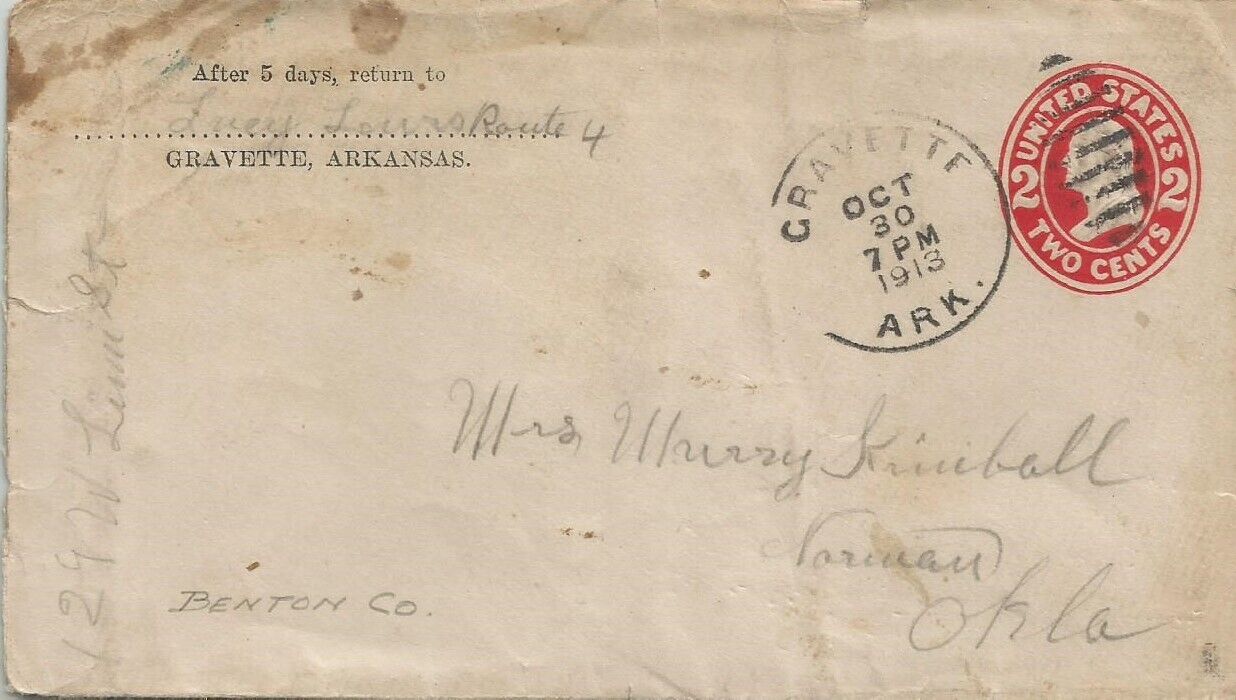 After 5 days, return to
Lucy Route 4
GRAVETTE, ARKANSAS.
GRAVETTE
OCT
30
7 PM
1913
ARK.
UNITED STATES
2 2
TWO CENTS
Mrs Murry Kimball
Norman
Okla
BENTON CO.
129 W Linn St